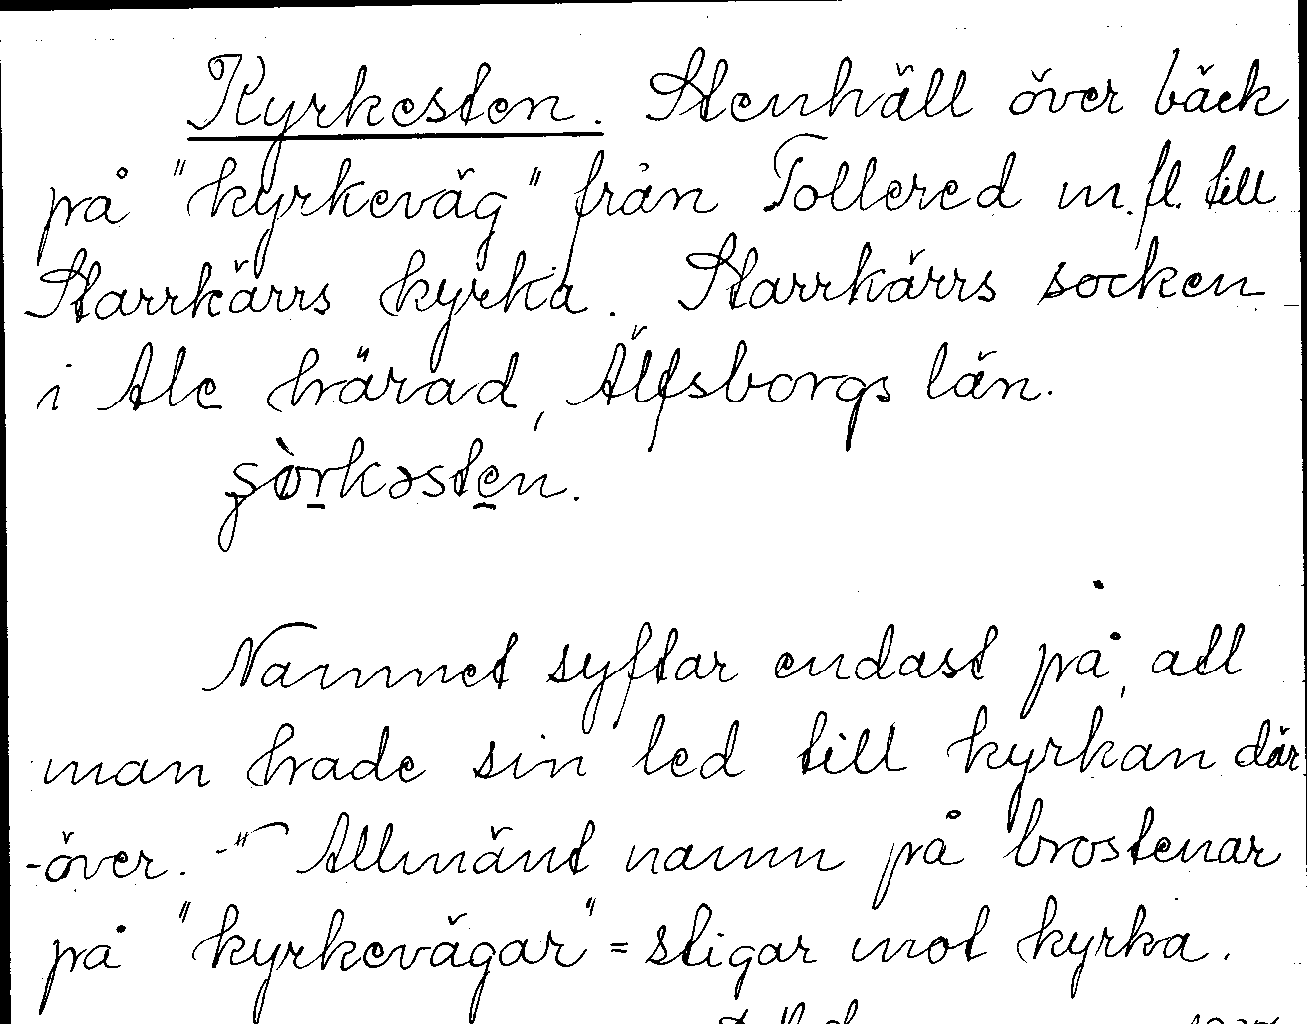 Kyrkesten. Stenhäll över bäck
på "kyrkeväg" från Tollered m.fl. till
Starrkärrs kyrka. Starrkärrs socken
i Ale härad, Älfsborgs län.
şòrkəsten.
Namnet syftar endast på, att
man hade sin led till kyrkan där
-över. -" Allmänt namn på brostenar
på "kyrkevägar" = stigar mot kyrka.